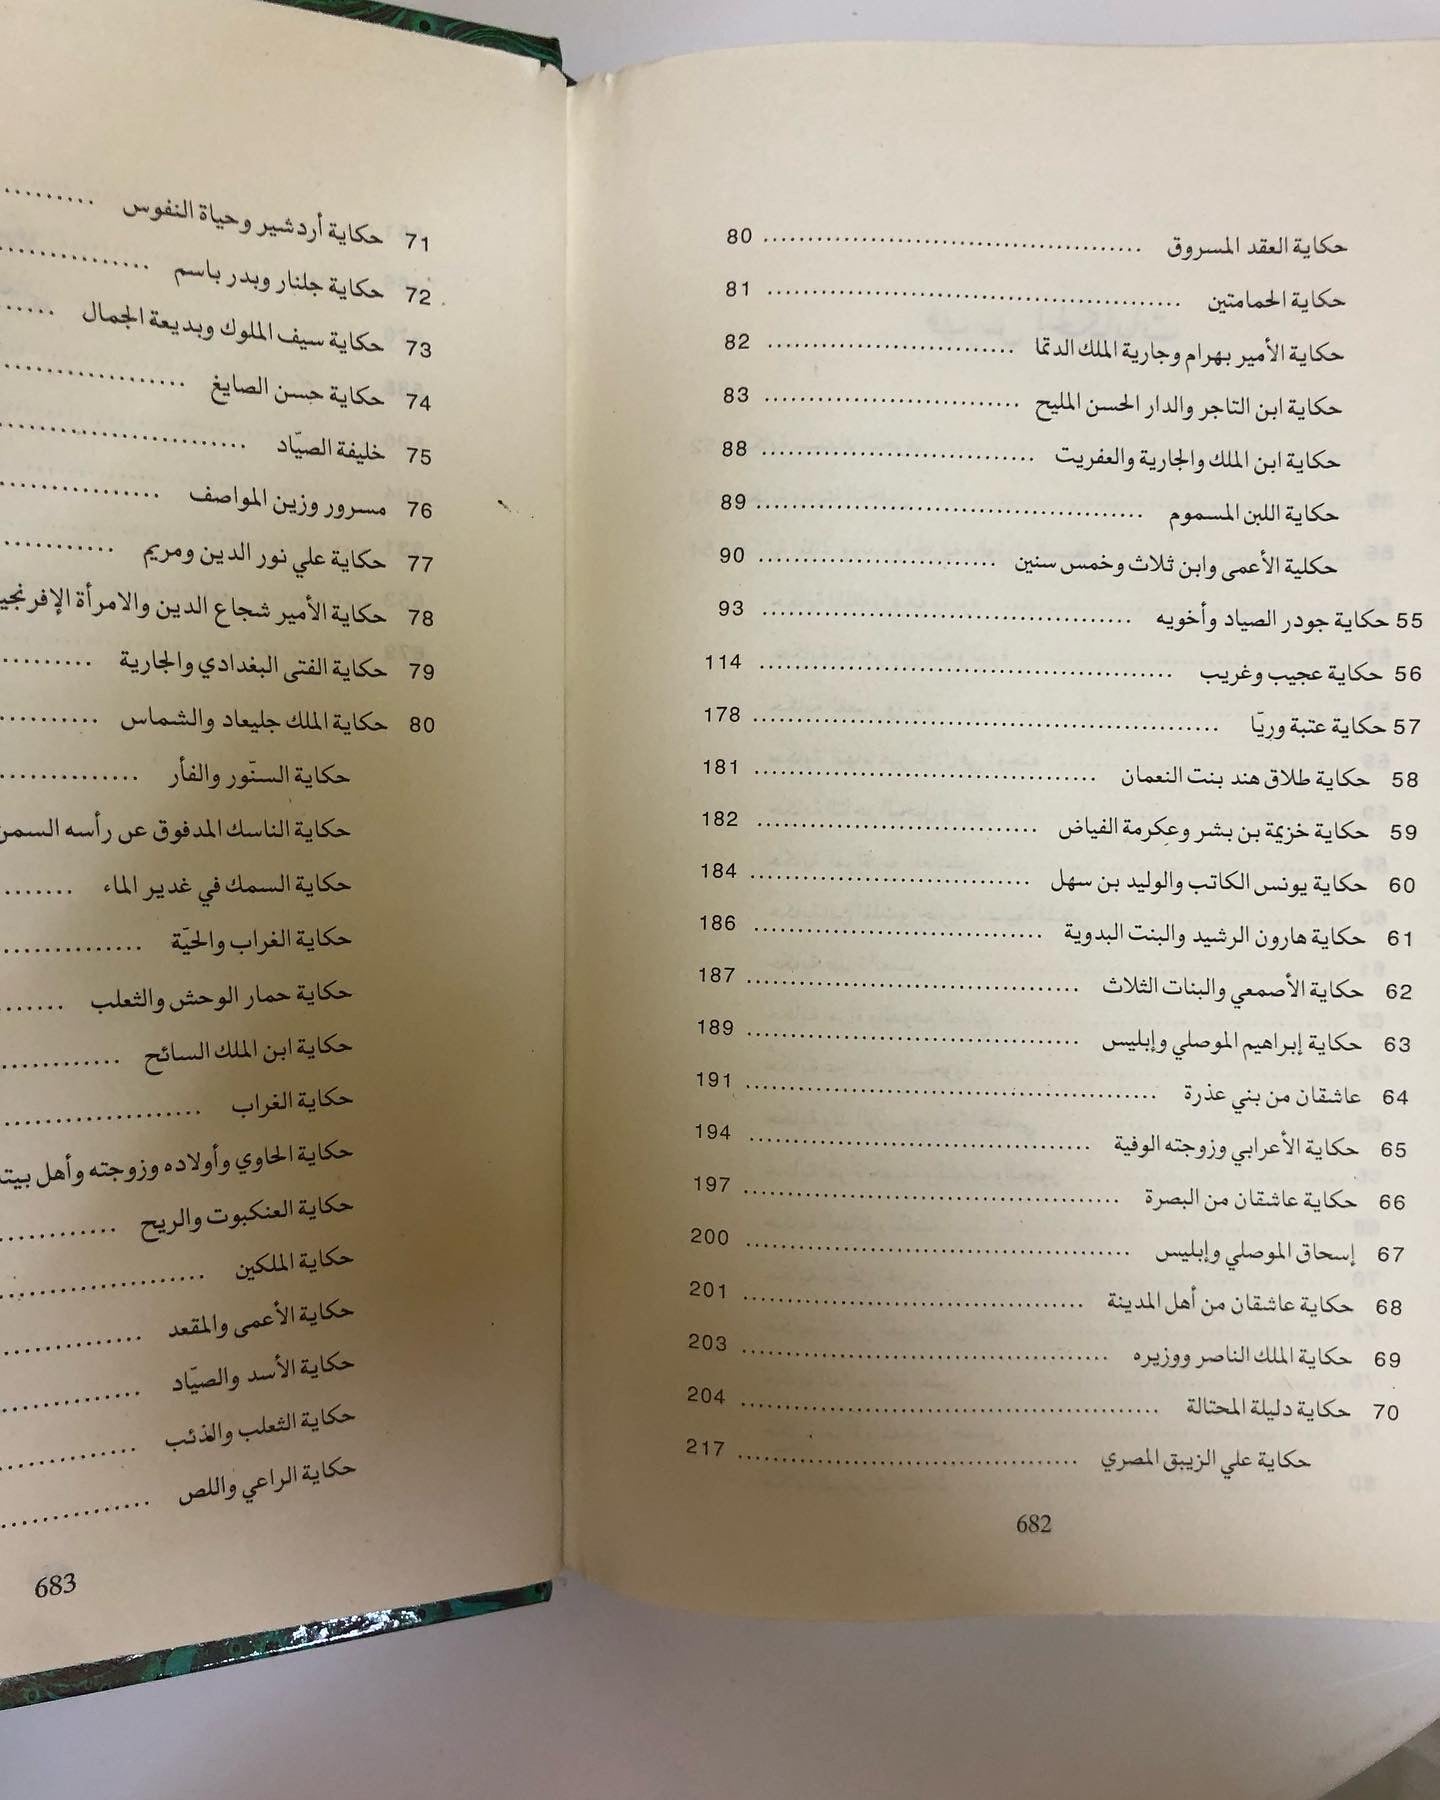 حكاية العقد المسروق ........ 80
حكاية الحمامتين ........ 81
حكاية الأمير بهرام وجارية الملك الدتما ........ 82
حكاية ابن التاجر والدار الحسن المليح ........ 83
حكاية ابن الملك والجارية والعفريت ........ 88
حكاية اللبن المسموم ........ 89
حكلية الأعمى وابن ثلاث وخمس سنين ........ 90
55 حكاية جودر الصياد وأخويه ........ 93
56 حكاية عجيب وغريب ........ 114
57 حكاية عتبة وريّا ........ 178
58 حكاية طلاق هند بنت النعمان ........ 181
59 حكاية خزيمة بن بشر وعكرمة الفياض ........ 182
60 حكاية يونس الكاتب والوليد بن سهل ........ 184
61 حكاية هارون الرشيد والبنت البدوية ........ 186
62 حكاية الأصمعي والبنات الثلاث ........ 187
63 حكاية إبراهيم الموصلي وإبليس ........ 189
64 عاشقان من بني عذرة ........ 191
65 حكاية الأعرابي وزوجته الوفية ........ 194
66 حكاية عاشقان من البصرة ........ 197
67 إسحاق الموصلي وإبليس ........ 200
68 حكاية عاشقان من أهل المدينة ........ 201
69 حكاية الملك الناصر ووزيره ........ 203
70 حكاية دليلة المحتالة ........ 204
حكاية علي الزيبق المصري ........ 217
682
71 حكاية أردشير وحياة النفوس ........
72 حكاية جلنار وبدر باسم ........
73 حكاية سيف الملوك وبديعة الجمال ........
74 حكاية حسن الصايغ ........
75 خليفة الصيّاد ........
76 مسرور وزين المواصف ........
77 حكاية علي نور الدين ومريم ........
78 حكاية الأمير شجاع الدين والامرأة الإفرنجي
79 حكاية الفتى البغدادي والجارية ........
80 حكاية الملك جليعاد والشماس ........
حكاية السنّور والفأر ........
حكاية الناسك المدفوق عن رأسه السمن
حكاية السمك في غدير الماء ........
حكاية الغراب والحيّة ........
حكاية حمار الوحش والثعلب ........
حكاية ابن الملك السائح ........
حكاية الغراب ........
حكاية الحاوي وأولاده وزوجته وأهل بيته
حكاية العنكبوت والريح ........
حكاية الملكين ........
حكاية الأعمى والمقعد ........
حكاية الأسد والصيّاد ........
حكاية الثعلب والذئب ........
حكاية الراعي واللص ........
683